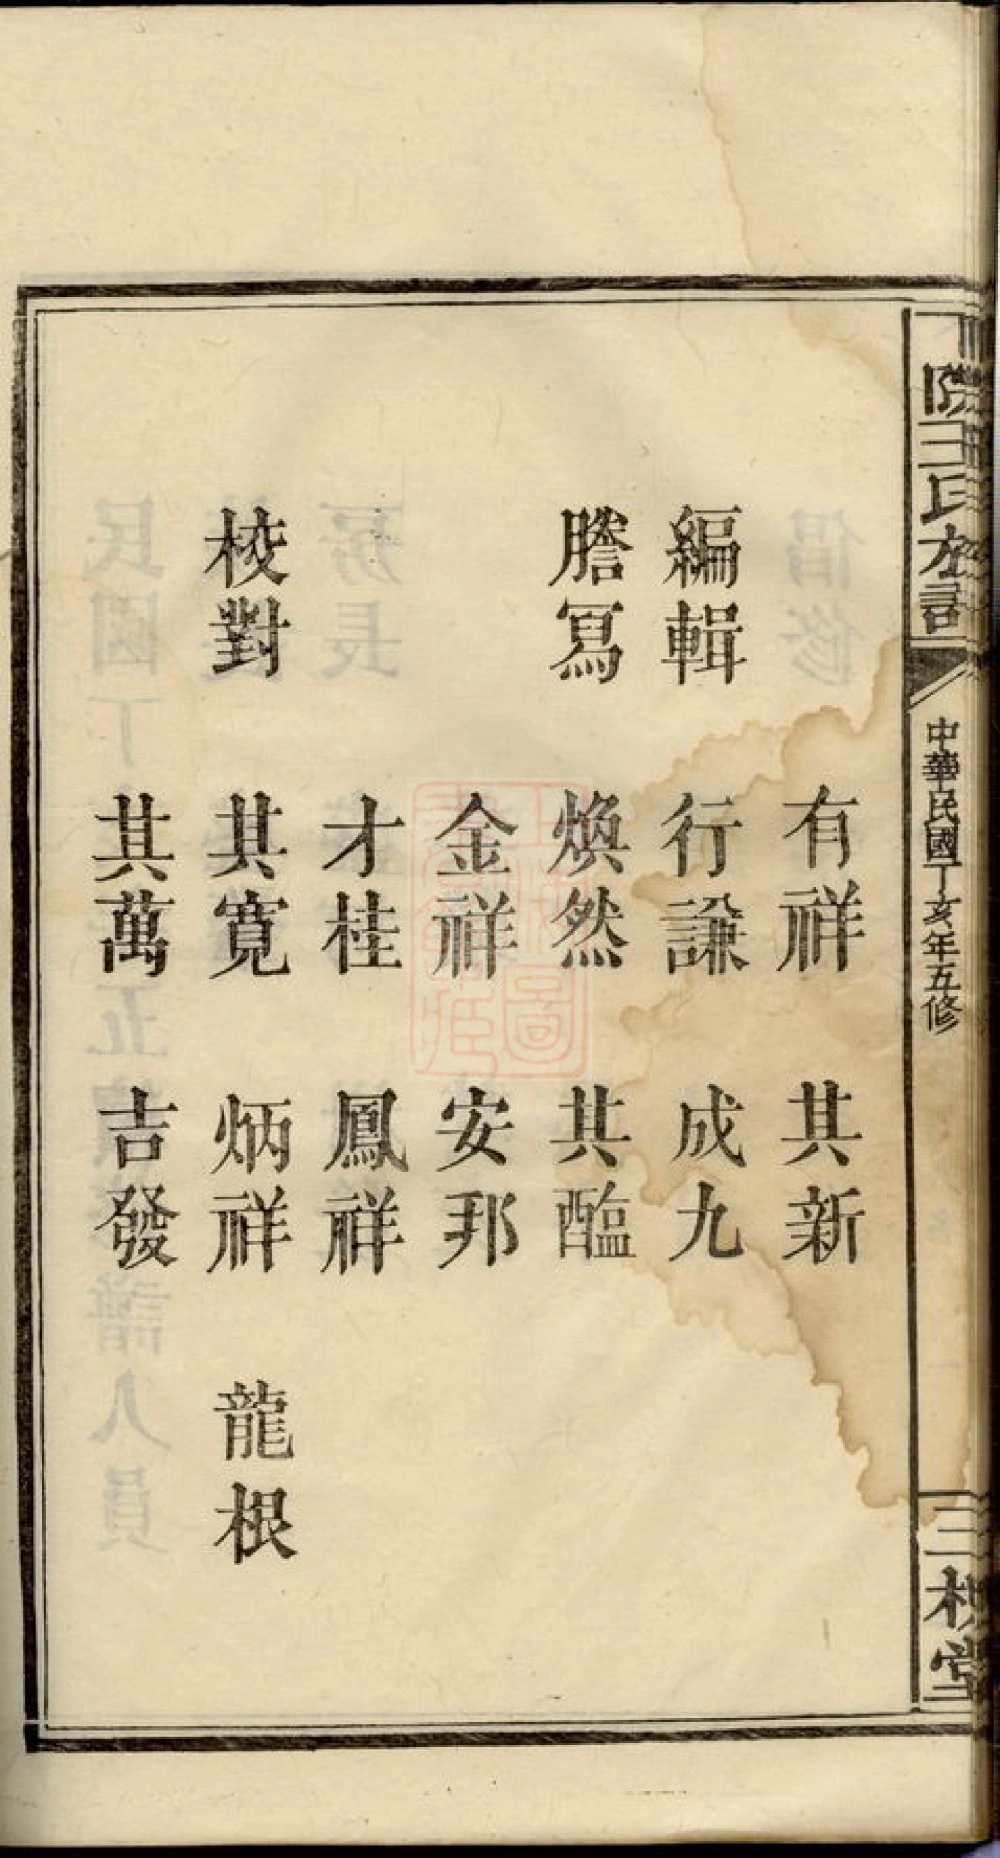 王氏族譜
中華民國丁亥年五修
三槐堂
有祥 其新
編輯 行謙 成九
謄寫 煥然 其醞
金祥 安邦
才桂 鳳祥
校對 其寬 炳祥 龍根
其萬 吉發